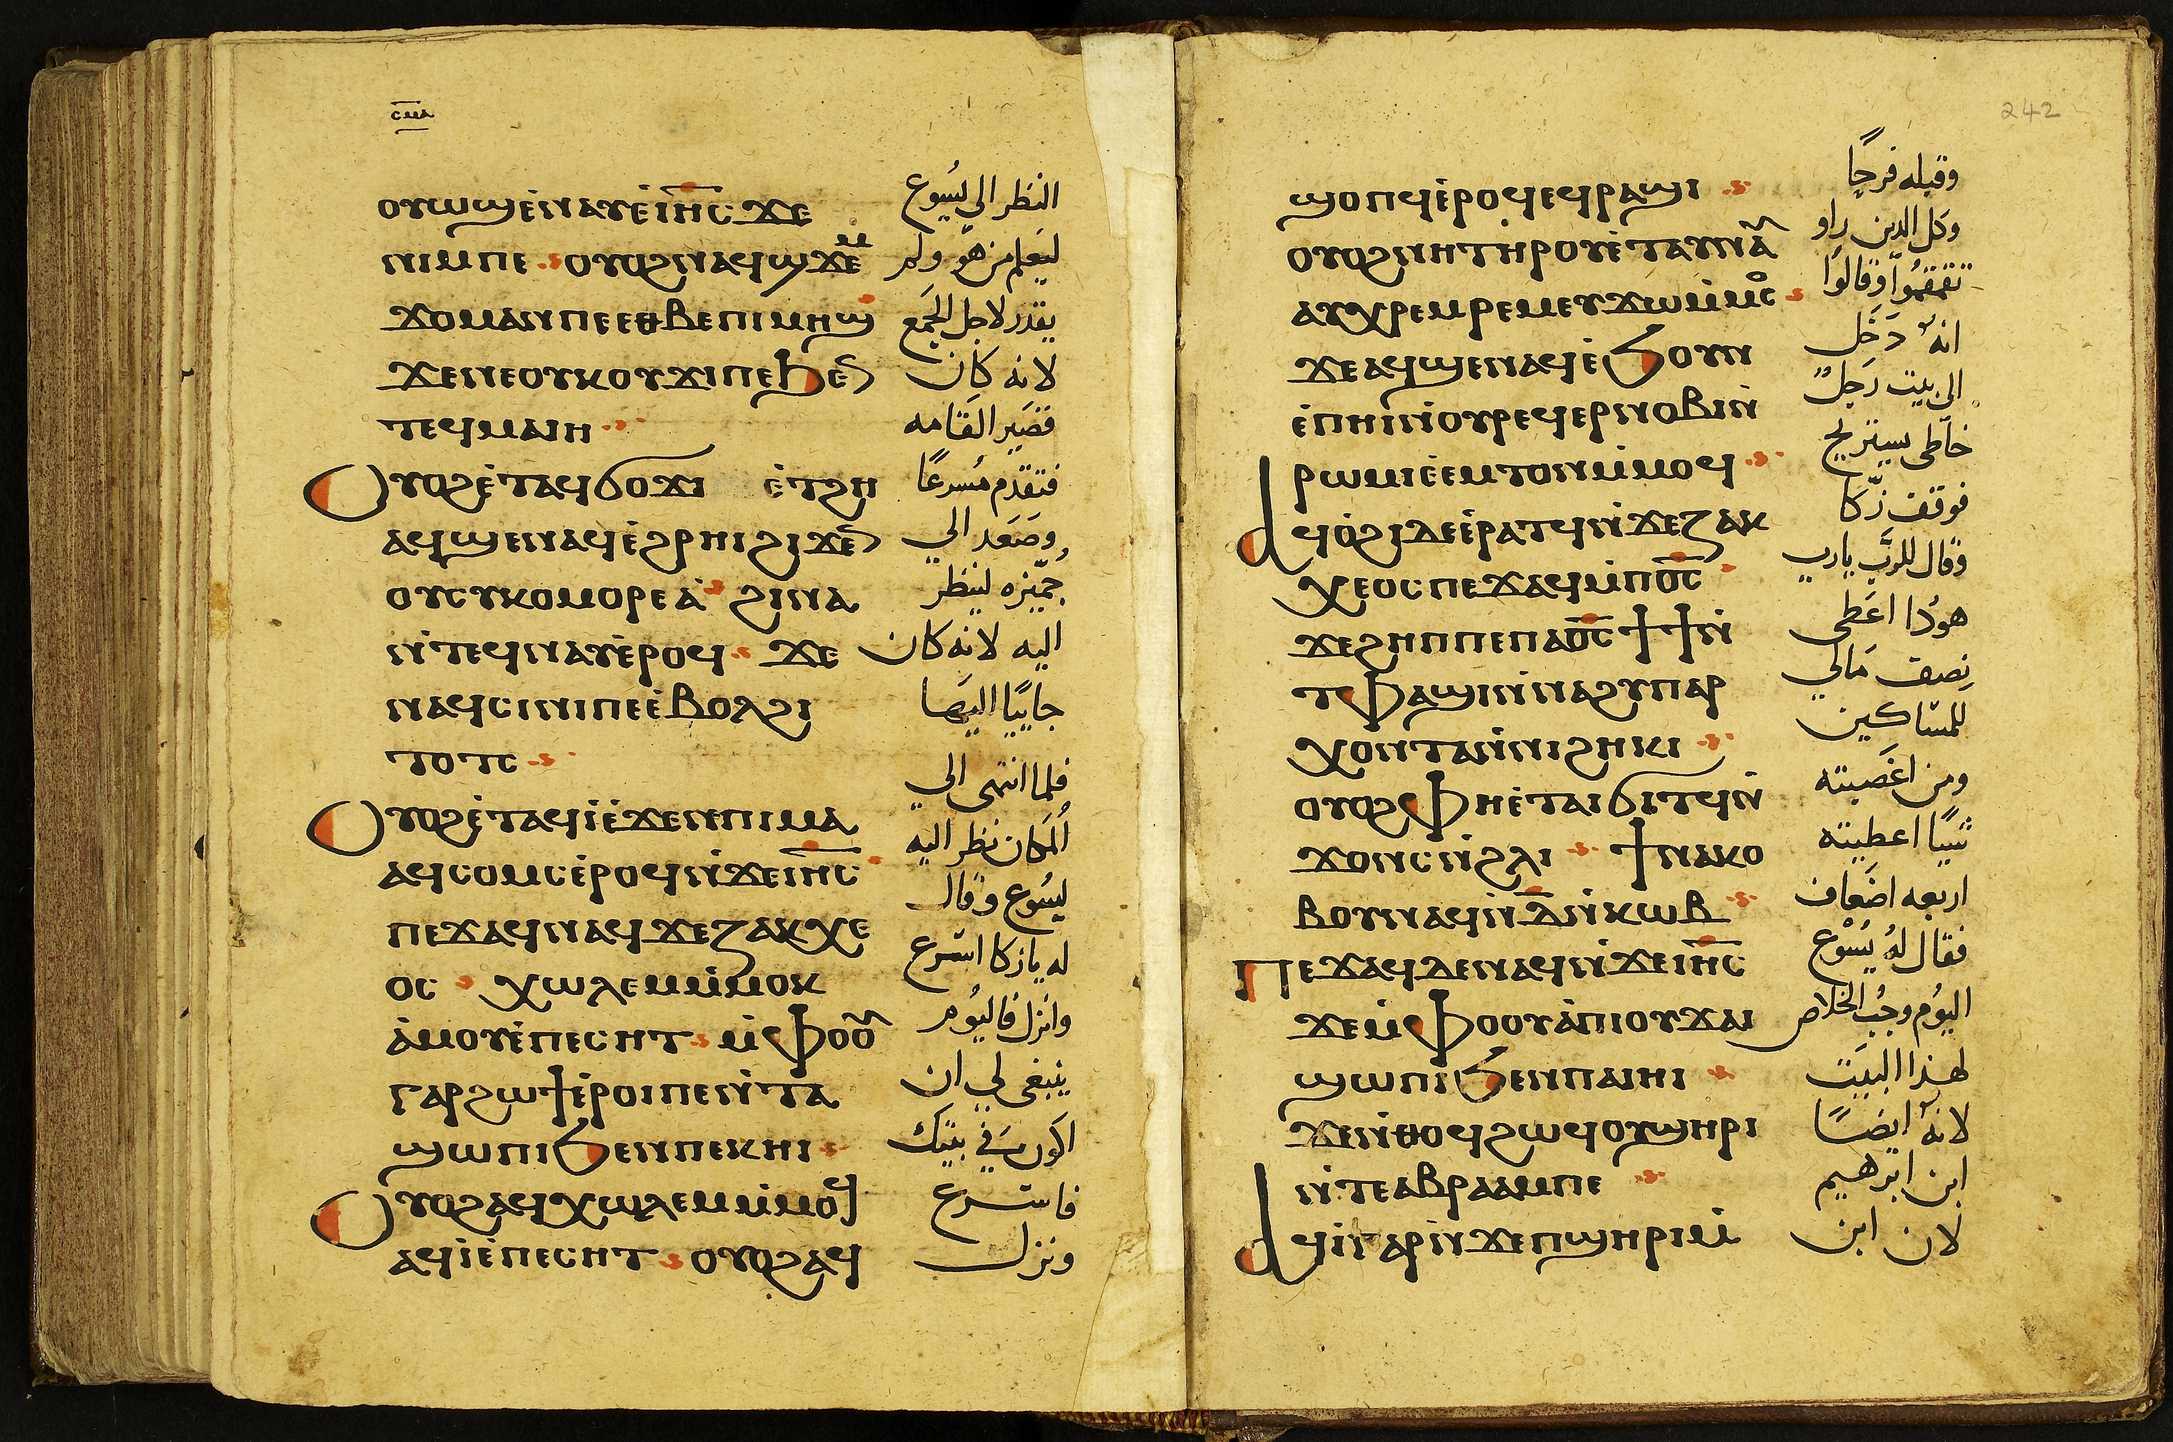 ⲥⲙⲁ
ⲟⲩⲱϣⲉ̀ⲛⲁⲩⲉ̀ⲓⲏ̅ⲥ̅ϫⲉ
ⲛⲓⲙⲡⲉ ⲟⲩⲟϩⲛⲁϥϣϫⲉⲙ
ϫⲟⲙⲁⲛⲡⲉⲉⲑⲃⲉⲡⲓⲙⲏϣ
ϫⲉⲛⲉⲟⲩⲕⲟⲩϫⲓⲡⲉϧⲉⲛ
ⲧⲉϥⲙⲁⲓⲏ
ⲟⲩⲟϩⲉ̀ⲧⲁϥϭⲟϫⲓ ⲉ̀ⲧϩⲏ
ⲁϥϣⲉⲛⲁϥⲉ̀ϩⲣⲏⲓϩⲓϫⲉⲛ
ⲟⲩⲥⲩⲕⲟⲙⲟⲣⲉⲁ̀ ϩⲓⲛⲁ
ⲛ̀ⲧⲉϥⲛⲁⲩⲉ̀ⲣⲟϥ ϫⲉ
ⲛⲁϥⲥⲓⲛⲓⲡⲉⲉ̀ⲃⲟⲗϩⲓ
ⲧⲟⲧⲥ
ⲟⲩⲟϩⲉ̀ⲧⲁϥⲓ̀ⲉ̀ϫⲉⲛⲡⲓⲙⲁ
ⲁϥⲥⲟⲙⲥⲉ̀ⲣⲟϥⲛ̀ϫⲉⲓⲏ̅ⲥ̅
ⲡⲉϫⲁϥⲛⲁϥϫⲉⲍⲁⲕⲭⲉ
ⲟⲥ ⲭⲱⲗⲉⲙⲙ̀ⲙⲟⲕ
ⲁ̀ⲙⲟⲩⲉ̀ⲡⲉⲥⲏⲧ ⲙ̀ⲫⲟⲟⲩ
ⲅⲁⲣϩⲱϯⲉ̀ⲣⲟⲓⲡⲉⲛ̀ⲧⲁ
ϣⲱⲡⲓϧⲉⲛⲡⲉⲕⲏⲓ
ⲟⲩⲟϩⲁϥⲭⲱⲗⲉⲙⲙ̀ⲙⲟϥ
ⲁϥⲓ̀ⲉ̀ⲡⲉⲥⲏⲧ ⲟⲩⲟϩⲁϥ
النظر الي يسُوع
ليَعلم من هو ولم
يقدر لاجل الجَمع
لانه كان
قصَير القَامه
فتقدم مُسرعًا
وصَعَد الي
جُميّزه لينظر
اليه لانه كان
جاييًا اليَها
فلما انتهي الي
اُلمكان نظر اليه
يسُوع وقال
له يا زكا استرع
وانزل فاليُوم
ينبغي لي ان
اكون في بيتك
فاسترع
ونزل
242
ϣⲟⲡϥⲉ̀ⲣⲟϥⲉϥⲣⲁϣⲓ
ⲟⲩⲟϩⲛⲏⲧⲏⲣⲟⲩⲉ̀ⲧⲁⲩⲛⲁⲩ
ⲁⲩⲭⲣⲉⲙⲣⲉⲙⲉⲩϫⲱⲙ̀ⲙⲟⲥ
ϫⲉⲁϥϣⲉⲛⲁϥⲉ̀ϧⲟⲩⲛ
ⲉ̀ⲡⲏⲓⲛ̀ⲟⲩⲣⲉϥⲉⲣⲛⲟⲃⲓⲛ̀
ⲣⲱⲙⲓⲉ̀ⲉⲙⲧⲟⲛⲙ̀ⲙⲟϥ
ⲁϥⲟ̀ϩⲓⲇⲉⲉ̀ⲣⲁⲧϥⲛ̀ϫⲉⲍⲁⲕ
ⲭⲉⲟⲥⲡⲉϫⲁϥⲙ̀ⲡⲟ̅ⲥ̅
ϫⲉϩⲏⲡⲡⲉⲡⲁⲟ̅ⲥ̅ϯϯⲛ̀
ⲧⲫⲁϣⲓⲛ̀ⲛⲁϩⲩⲡⲁⲣ
ⲭⲟⲛⲧⲁⲛ̀ⲛⲓϩⲏⲕⲓ
ⲟⲩⲟϩⲫⲏⲉ̀ⲧⲁⲓϭⲓⲧϥⲛ̀
ϫⲟⲛⲥⲛ̀ϩⲗⲓ ϯⲛⲁⲕⲟ
ⲃⲟⲩⲛⲁϥⲛ̀ⲇ̅ⲛ̀ⲕⲱⲃ
ⲡⲉϫⲁϥⲇⲉⲛⲁϥⲛ̀ϫⲉⲓⲏ̅ⲥ̅
ϫⲉⲙ̀ⲫⲟⲟⲩⲁ̀ⲡⲓⲟⲩϫⲁⲓ
ϣⲱⲡⲓϧⲉⲛⲡⲁⲓⲏⲓ
ϫⲉⲛ̀ⲑⲟϥϩⲱϥⲟⲩϣⲏⲣⲓ
ⲛ̀ⲧⲉⲁⲃⲣⲁⲁⲙⲡⲉ
ⲁϥⲓ̀ⲅⲁⲣⲛ̀ϫⲉⲡϣⲏⲣⲓⲙ̀
وقبله فرحًا
وكل الدين راو
تقمقمُوا وقالوا
انه دَخَل
الي بيت رَجل
خاطي يستريح
فوقف زكا
وقال للربّ يارب
هودا اعَطي
نصف مَالي
للمسَاكين
ومن اغصَبته
شيًا اعطيته
اربعه اضعَاف
فقال لهُ يسُوع
اليُوم وجبُ الخلاص
لهذا البيَت
لانه ايضًا
ابن ابرهيم
لان ابن